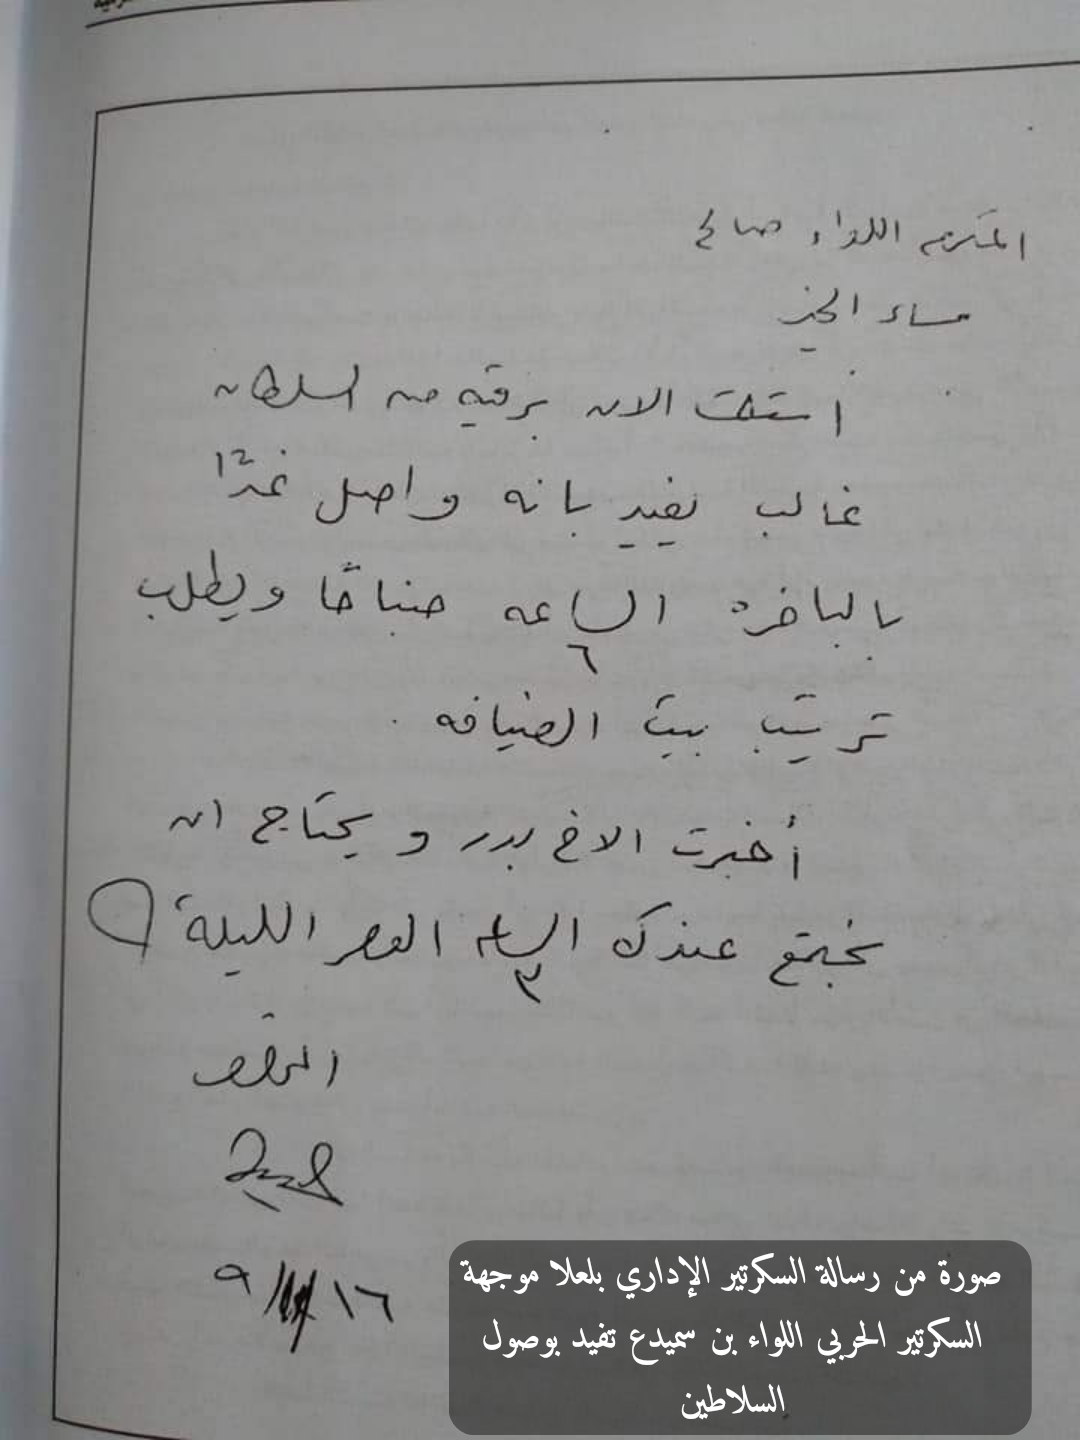 المكرم اللواء صالح
مساء الخير
أستلمت الان برقيه من السلطان
غالب يفيد بانه واصل غدًا
بالباخره الساعه ٦ صباحًا ويطلب
ترتيب بيت الضيافه .
أخبرت الاخ بدر ويحتاج ان
نجتمع عندك الساعه ٣ العصر الليلة
٩/ /١٦
صورة من رسالة السكرتير الإداري بلعلا موجهة
السكرتير الحربي اللواء بن سميدع تفيد بوصول
السلاطين